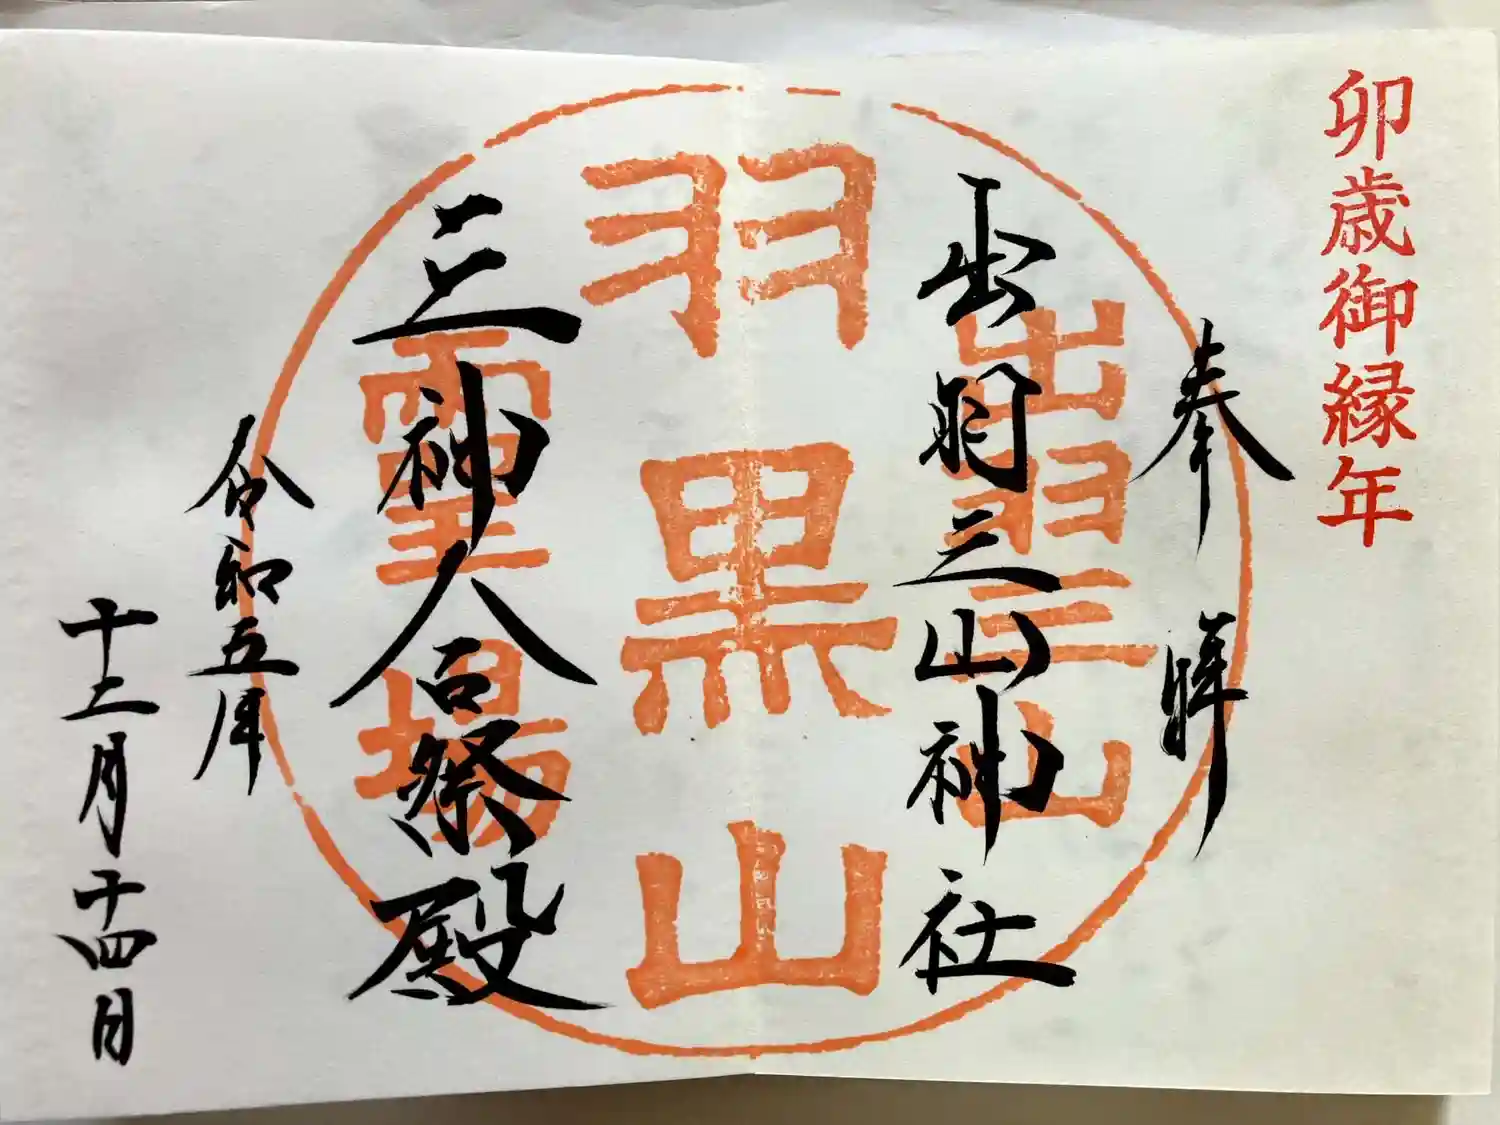 卯歳御縁年
奉拝
出羽三山神社
三神合祭殿
令和五年
十二月十四日
出羽三山
羽黒山
霊場